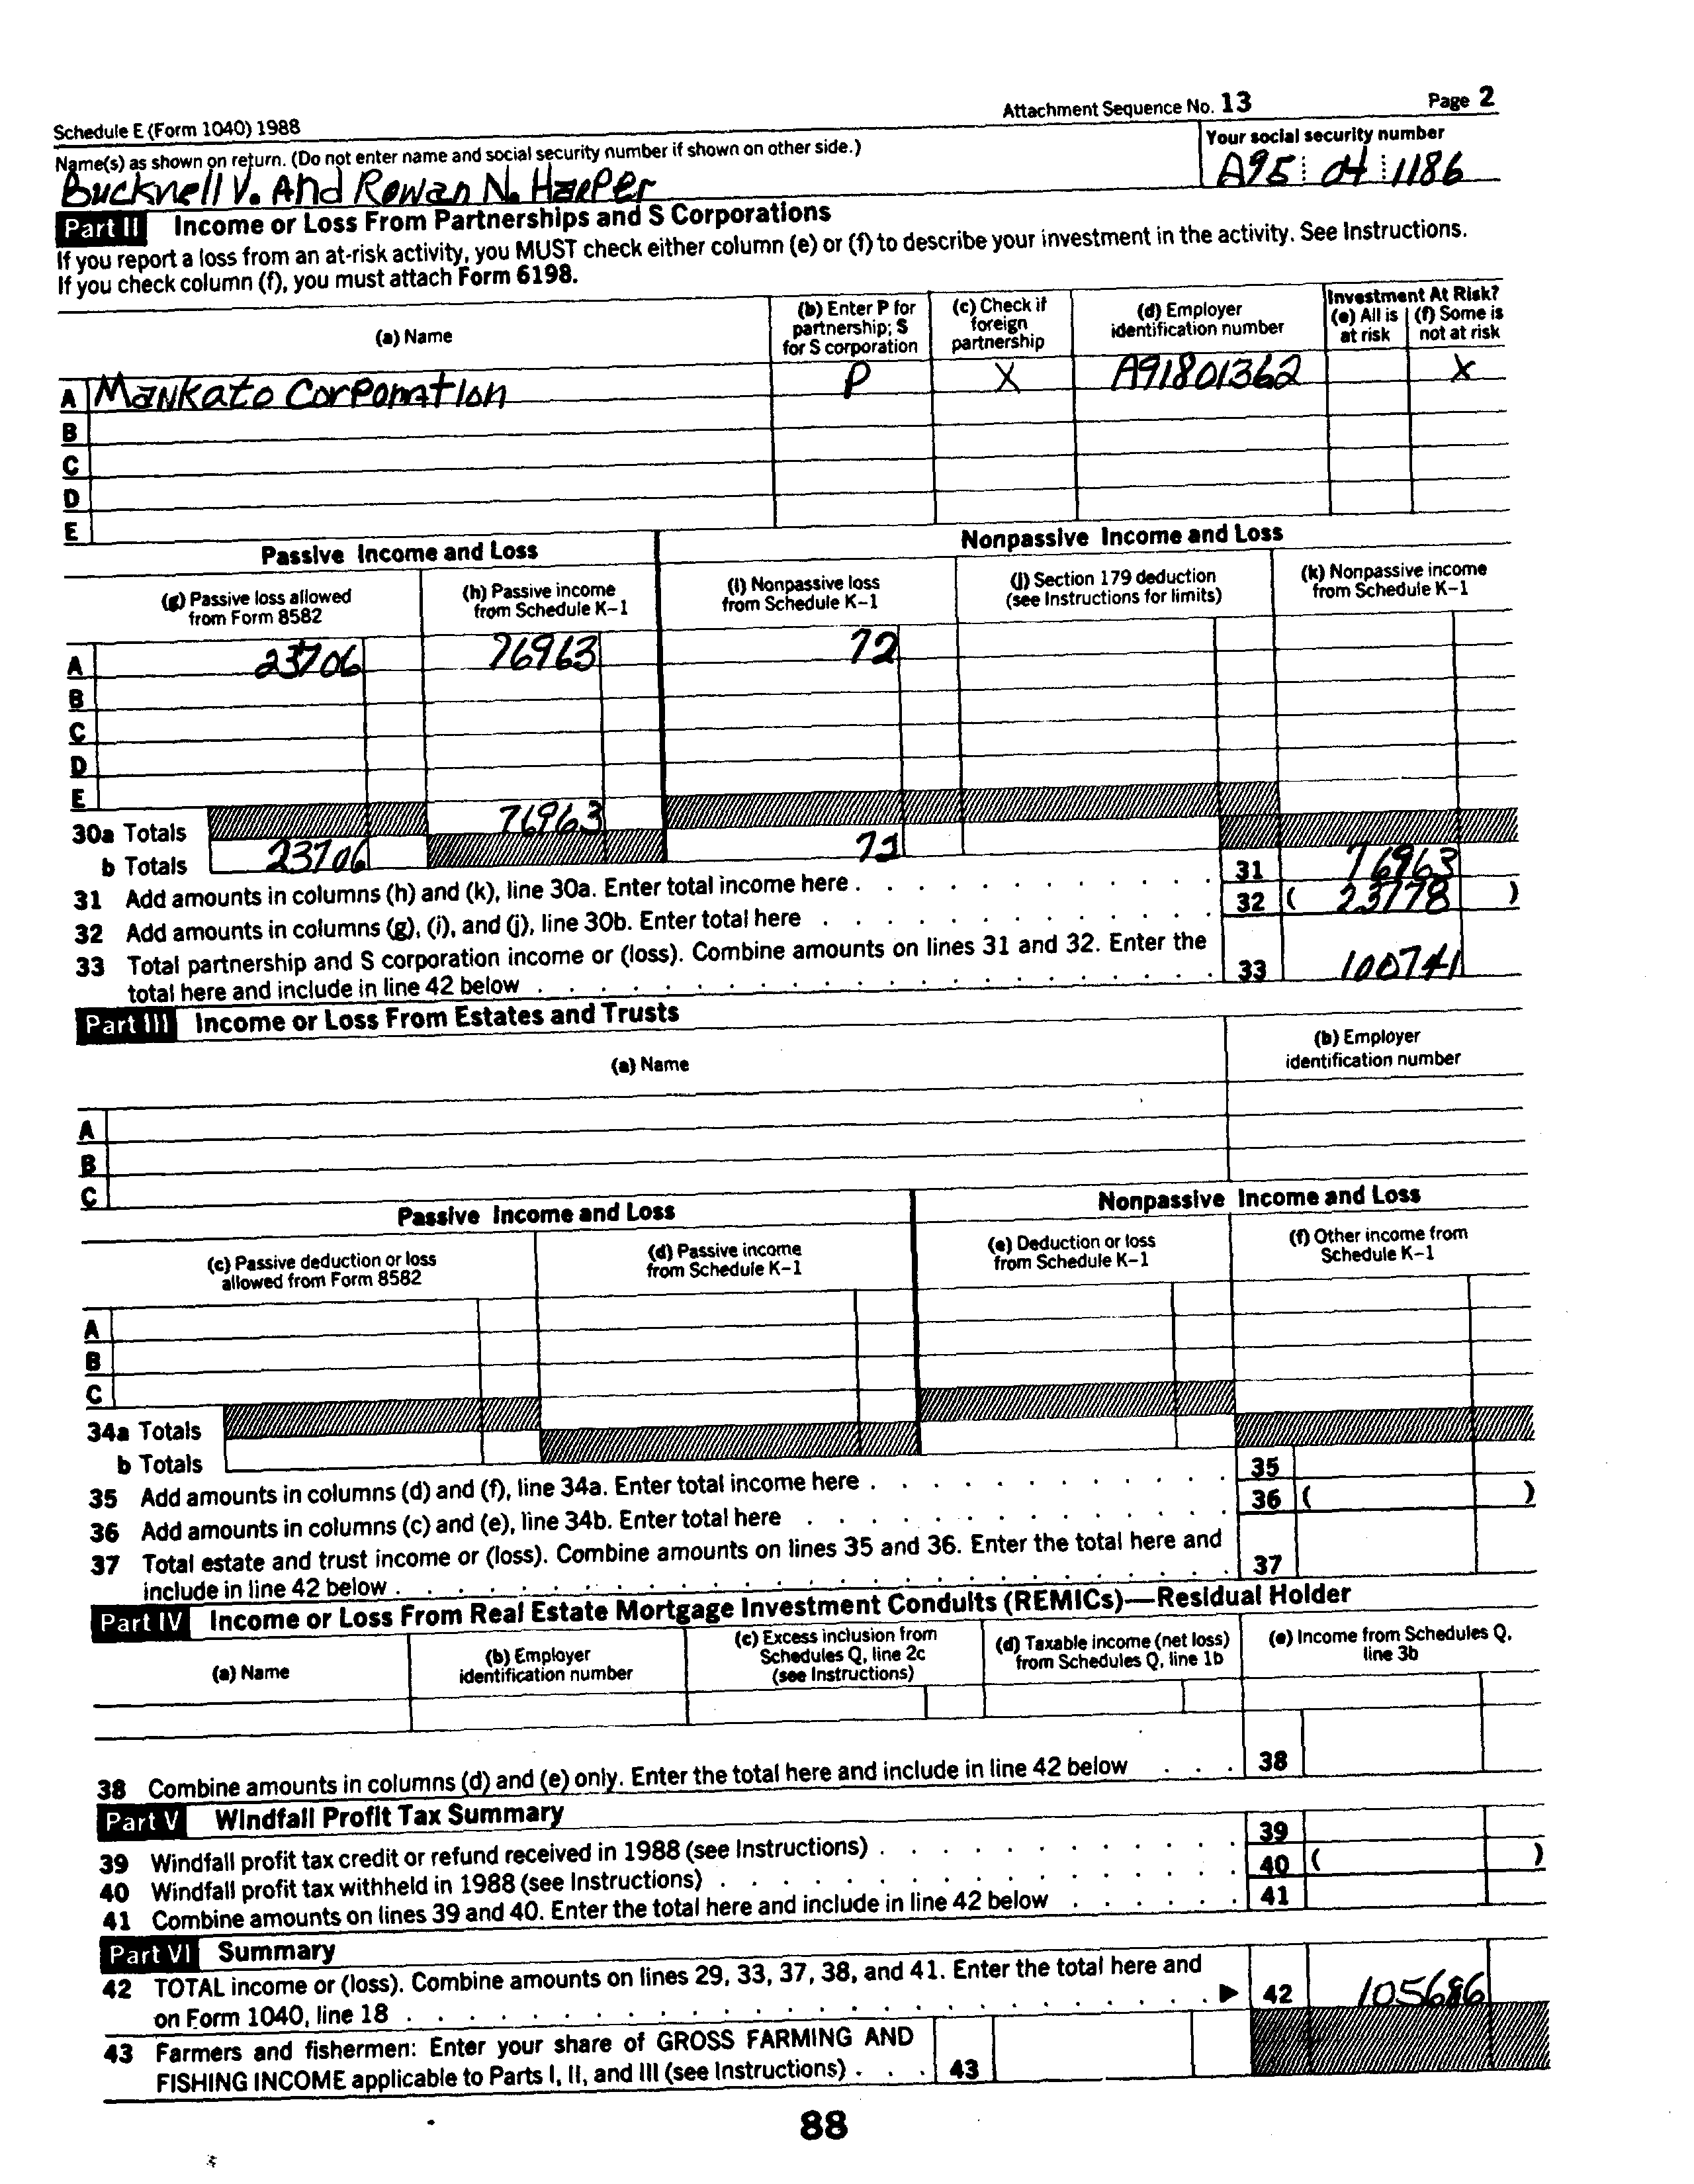 Schedule E (Form 1040) 1988 Attachment Sequence No. 13 Page 2
Name(s) as shown on return. (Do not enter name and social security number if shown on other side.) Your social security number
Bucknell V. And Rowan N. Harper A95 04 1186
Part II Income or Loss From Partnerships and S Corporations
If you report a loss from an at-risk activity, you MUST check either column (e) or (f) to describe your investment in the activity. See Instructions.
If you check column (f), you must attach Form 6198.
(a) Name
(b) Enter P for partnership; S for S corporation
(c) Check if foreign partnership
(d) Employer identification number
Investment At Risk?
(e) All is at risk
(f) Some is not at risk
A Mankato Corporation P X A91801362 X
B
C
D
E
Passive Income and Loss Nonpassive Income and Loss
(g) Passive loss allowed from Form 8582
(h) Passive income from Schedule K-1
(i) Nonpassive loss from Schedule K-1
(j) Section 179 deduction (see Instructions for limits)
(k) Nonpassive income from Schedule K-1
A 23706 76963 72
B
C
D
E
30a Totals 76963
b Totals 23706 72
31 Add amounts in columns (h) and (k), line 30a. Enter total income here . . . 31 76963
32 Add amounts in columns (g), (i), and (j), line 30b. Enter total here . . . 32 ( 23778 )
33 Total partnership and S corporation income or (loss). Combine amounts on lines 31 and 32. Enter the
total here and include in line 42 below . . . 33 100741
Part III Income or Loss From Estates and Trusts
(a) Name
(b) Employer identification number
A
B
C
Passive Income and Loss Nonpassive Income and Loss
(c) Passive deduction or loss allowed from Form 8582
(d) Passive income from Schedule K-1
(e) Deduction or loss from Schedule K-1
(f) Other income from Schedule K-1
A
B
C
34a Totals
b Totals
35 Add amounts in columns (d) and (f), line 34a. Enter total income here . . . 35
36 Add amounts in columns (c) and (e), line 34b. Enter total here . . . 36 ( )
37 Total estate and trust income or (loss). Combine amounts on lines 35 and 36. Enter the total here and
include in line 42 below . . . 37
Part IV Income or Loss From Real Estate Mortgage Investment Conduits (REMICs)—Residual Holder
(a) Name
(b) Employer identification number
(c) Excess inclusion from Schedules Q, line 2c (see Instructions)
(d) Taxable income (net loss) from Schedules Q, line 1b
(e) Income from Schedules Q, line 3b
38 Combine amounts in columns (d) and (e) only. Enter the total here and include in line 42 below . . . 38
Part V Windfall Profit Tax Summary
39 Windfall profit tax credit or refund received in 1988 (see Instructions) . . . 39
40 Windfall profit tax withheld in 1988 (see Instructions) . . . 40 ( )
41 Combine amounts on lines 39 and 40. Enter the total here and include in line 42 below . . . 41
Part VI Summary
42 TOTAL income or (loss). Combine amounts on lines 29, 33, 37, 38, and 41. Enter the total here and
on Form 1040, line 18 . . . ▶ 42 105686
43 Farmers and fishermen: Enter your share of GROSS FARMING AND
FISHING INCOME applicable to Parts I, II, and III (see Instructions) . . . 43
88